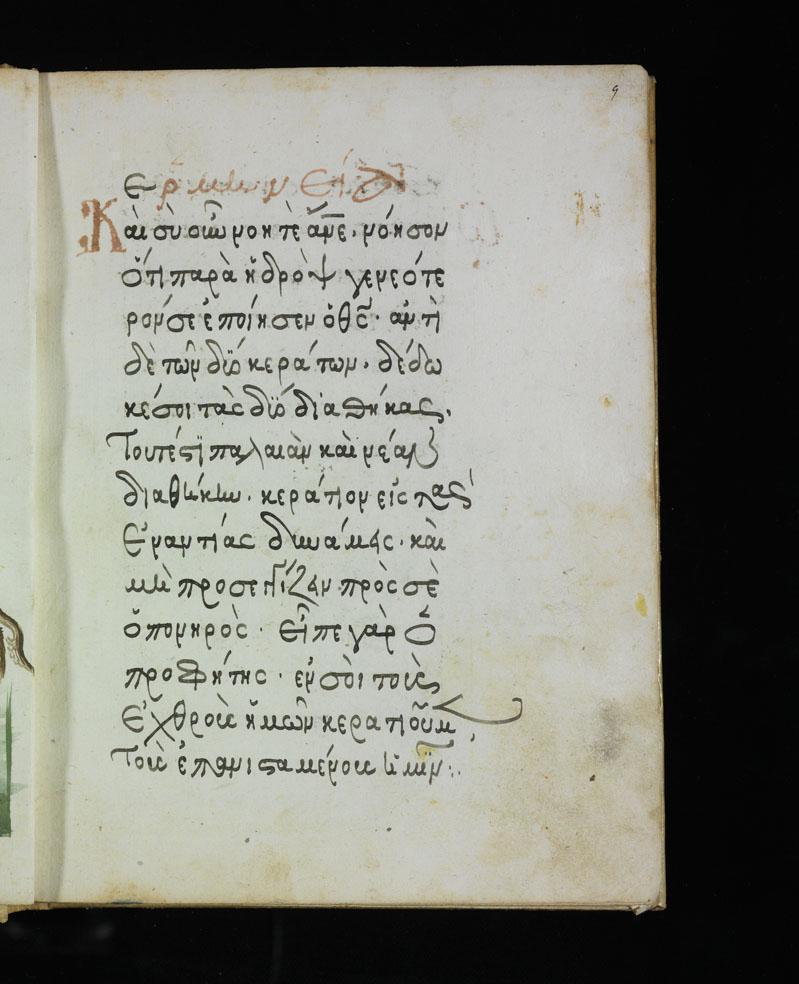 9
Ερμηνεία
Καὶ σὺ οὖν νοητὲ ἄνε. νόησον
ὅτι παρὰ ὑδρόψ γενεότε
ρον σε ἐποίησεν ὁ θς. ἀντὶ
δὲ τῶν δύο κεράτων. δέδω
κέ σοι τὰς δύο διαθήκας.
Τουτέστι παλαιὰν καὶ νέαν
διαθήκην. κεράτιον εἰς πᾶς
Ἐναντίας δυνάμεις. καὶ
μὴ προσεγγίζειν πρὸς σὲ
ὁ πονηρὸς. Εἶπε γὰρ ὁ
προφήτης. ἐν σὸι τοὺς
Ἐχθροὺς ἡμῶν κερατιοῦμ
Τοὺς ἐπανισταμένους ἡμῖν:.